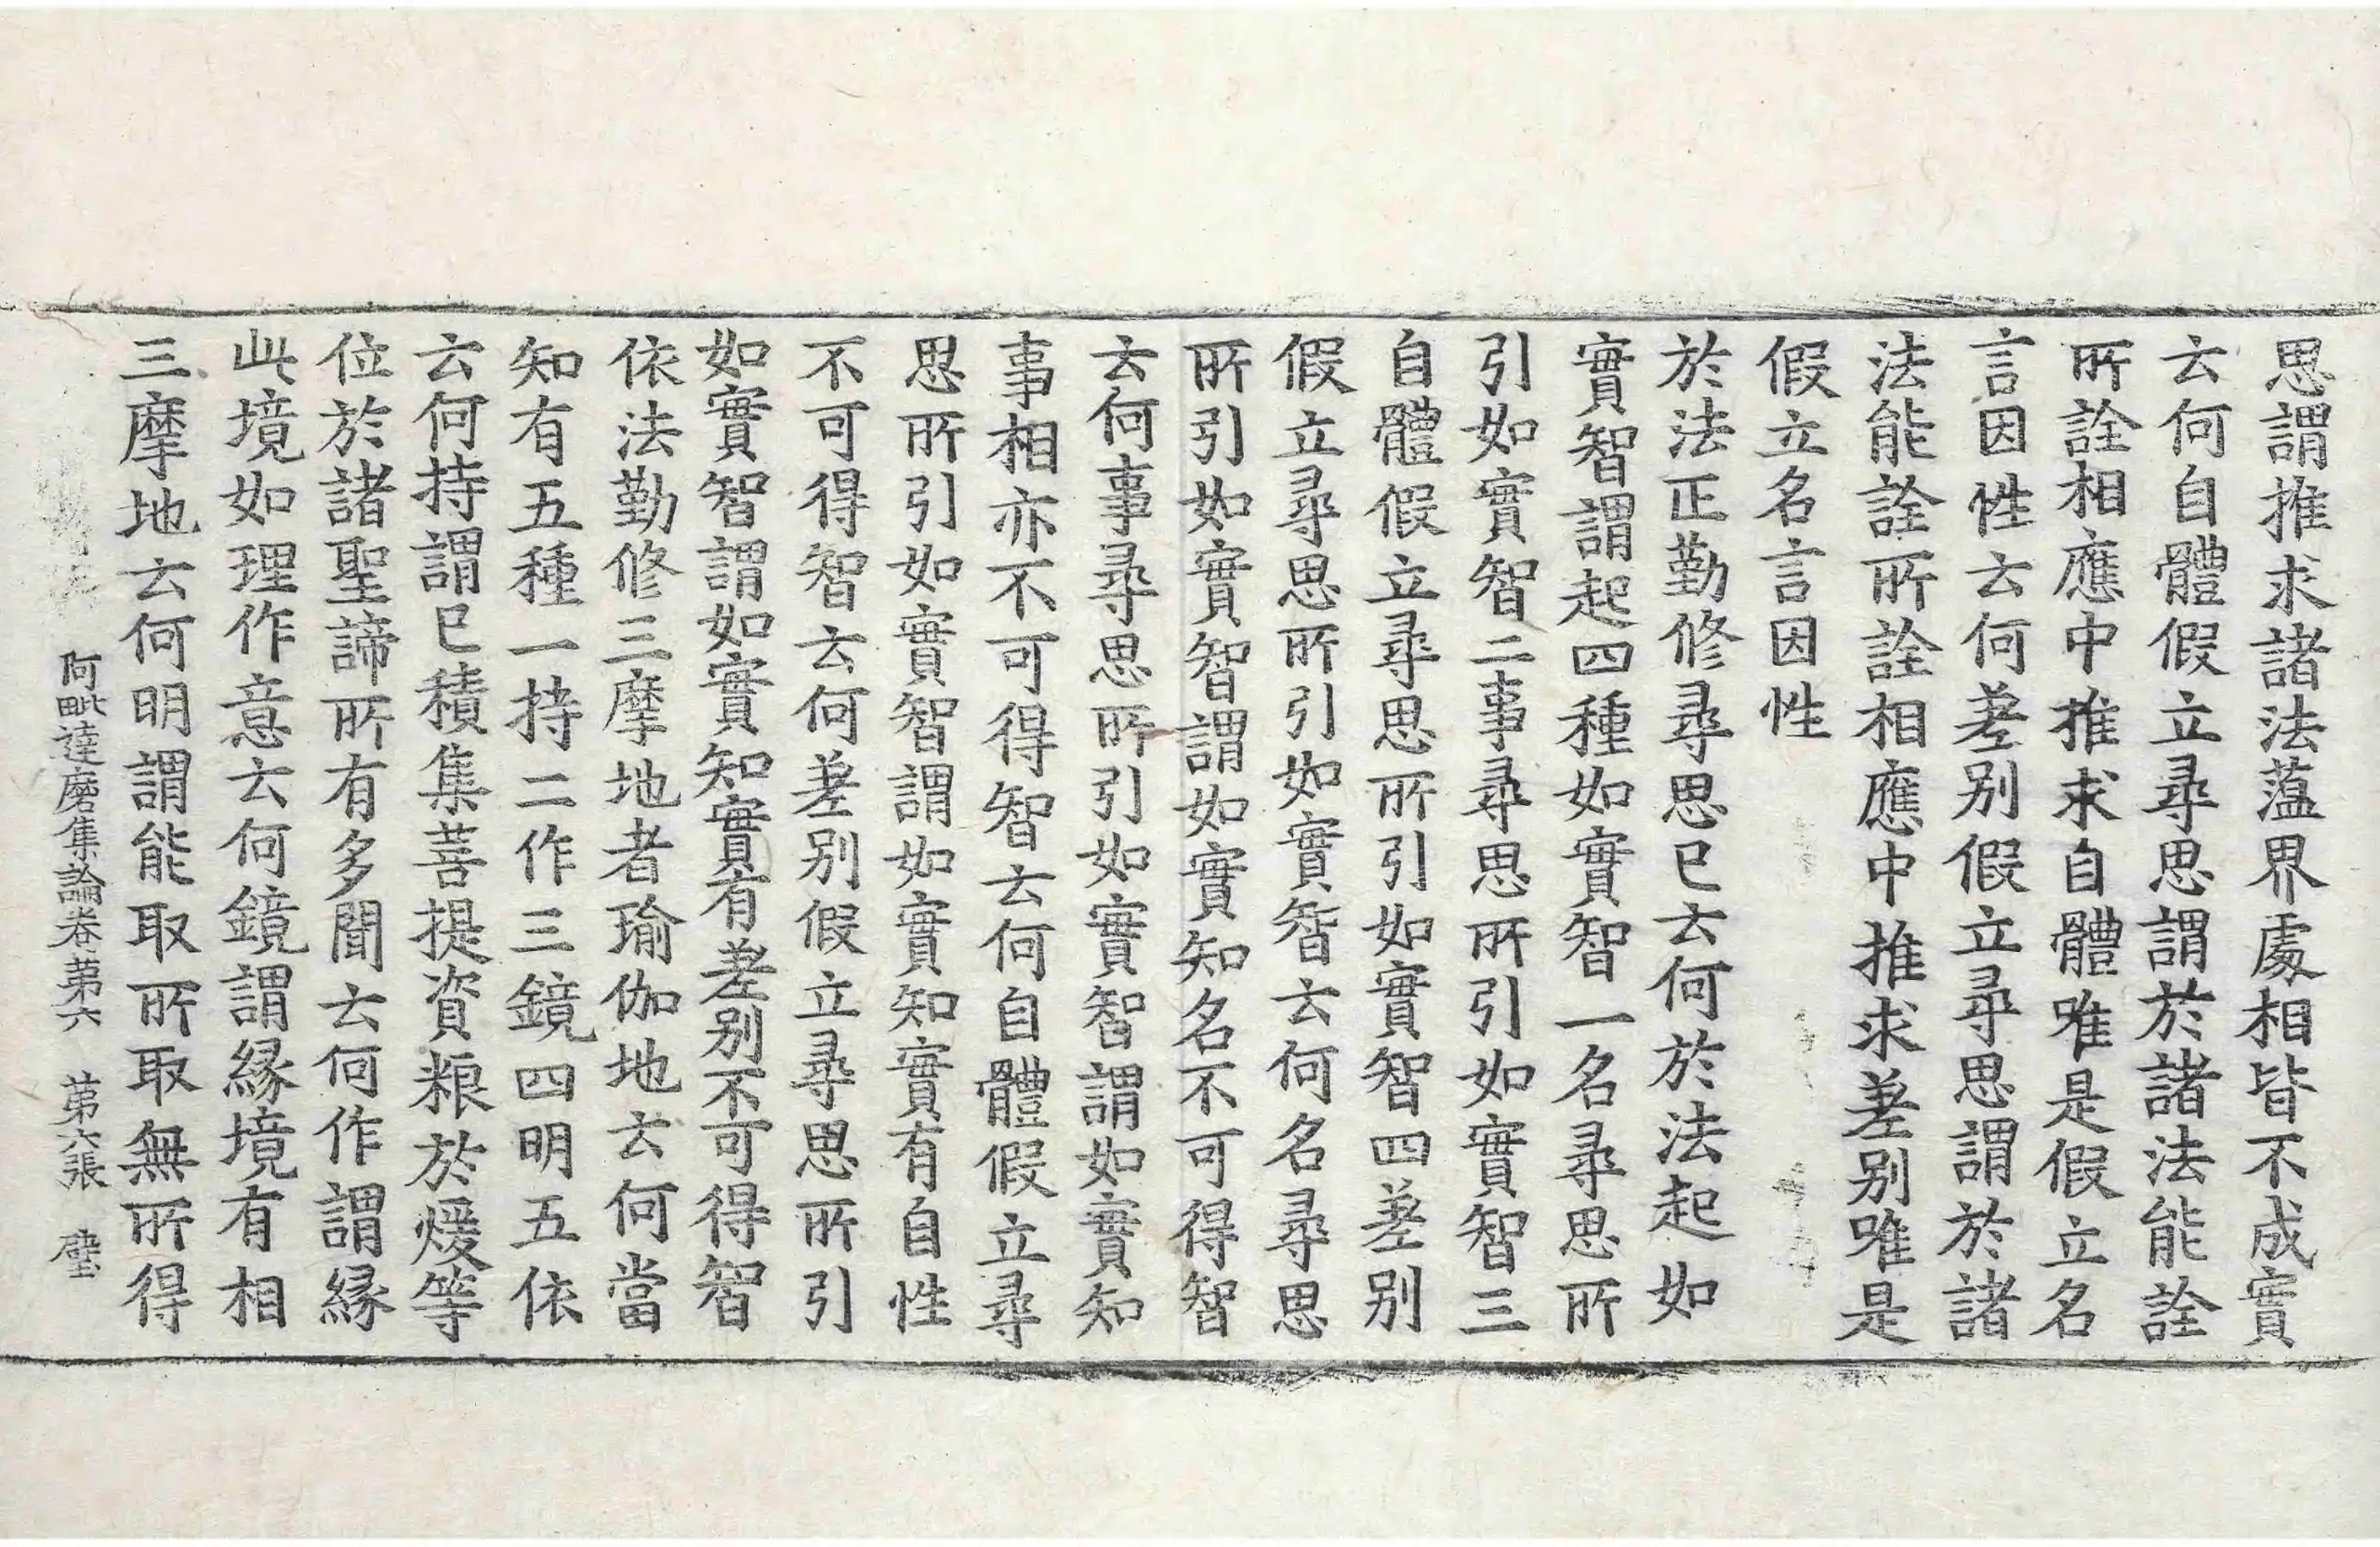 思謂推求諸法薀界處相皆不成實
云何自體假立尋思謂於諸法能詮
所詮相應中推求自體唯是假立名
言因性云何差别假立尋思謂於諸
法能詮所詮相應中推求差别唯是
假立名言因性
於法正勤修尋思已云何於法起如
實智謂起四種如實智一名尋思所
引如實智二事尋思所引如實智三
自體假立尋思所引如實智四差别
假立尋思所引如實智云何名尋思
所引如實智謂如實知名不可得智
云何事尋思所引如實智謂如實知
事相亦不可得智云何自體假立尋
思所引如實智謂如實知實有自性
不可得智云何差别假立尋思所引
如實智謂如實知實有差别不可得智
依法勤修三摩地者瑜伽地云何當
知有五種一持二作三鏡四明五依
云何持謂已積集菩提資粮於煖等
位於諸聖諦所有多聞云何作謂縁
此境如理作意云何鏡謂縁境有相
三摩地云何明謂能取所取無所得
阿毗達磨集論卷第六 第六張 璧